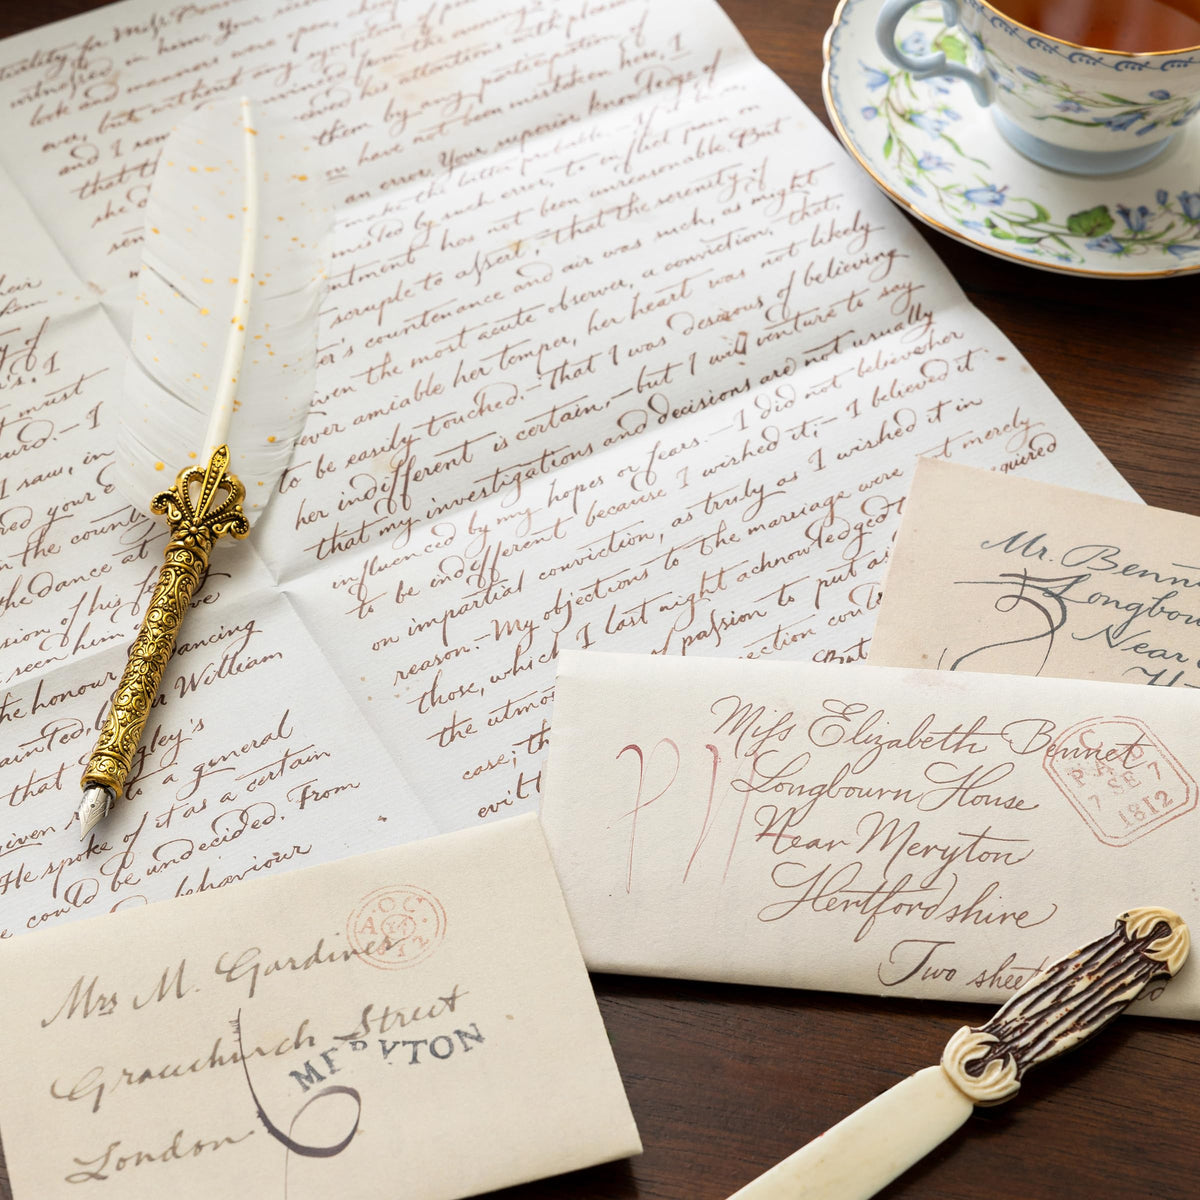 tiality for Miss
witnessed in him. Your
look and manners were open, cheer
ever, but without any symptom of
and I rem vinced from the evening's
that th ved his attentions with pleasure
she d them by any participation of
sen ou have not been mistaken here, I
an error. Your superior knowledge of
make the latter probable. – If it be so,
misled by such error, to inflict pain on
ntment has not been unreasonable. But
scruple to assert, that the serenity of
er's countenance and air was such, as might
iven the most acute observer, a conviction, that,
ever amiable her temper, her heart was not likely
to be easily touched. – That I was desirous of believing
her indifferent is certain, – but I will venture to say
that my investigations and decisions are not usually
influenced by my hopes or fears. – I did not believe her
to be indifferent because I wished it; – I believed it
on impartial conviction, as truly as I wished it in
reason. – My objections to the marriage were not merely
those, which I last night acknowledged t equired
the utmo passion to put as
case; th ection could
But
evils
y of
's. I
t must
urd. – I
I saw, in
red your e
n the country
the dance at
sion of his fe
seen him love
the honour dancing
ainted, by r William
that gley's
given to a general
He spoke of it as a certain
e could be undecided. From
behaviour
Mr. Benn
Longbou
Near
H
Miss Elizabeth Bennet
Longbourn House
Near Meryton
Hertfordshire
Two sheet
PW
C
7 SE 7
1812
Mrs M. Gardiner
Gracechurch Street
London
A OC
14
12
MERYTON